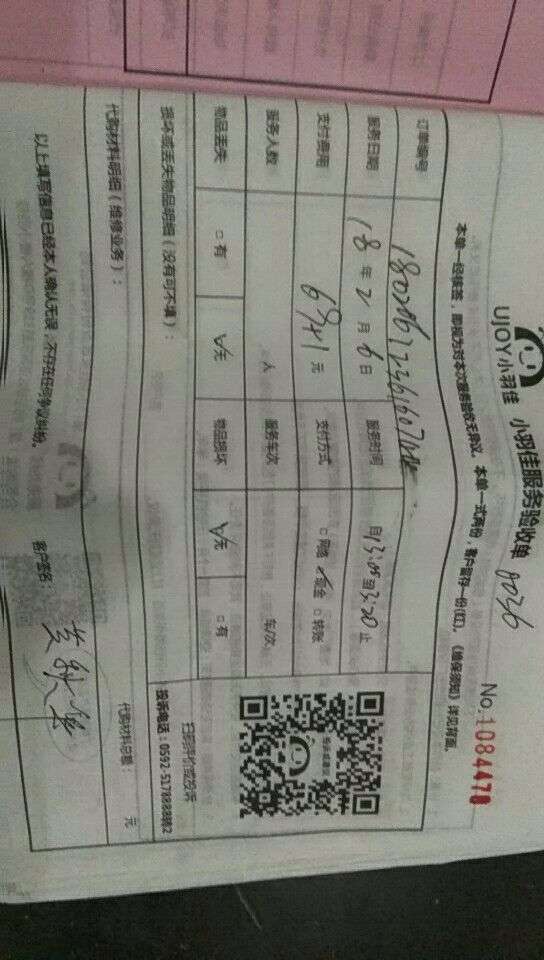 UJOY小羽佳 小羽佳服务验收单 8036
No.1084478
本单一经核签，即视为对本次服务验收无异议。本单一式两份，客户留存一份(红)。《维保须知》详见背面。
订单编号
服务日期 18年2月6日 服务时间 自13:05至3:20止
支付费用 元 支付方式 □网络 ☑现金 □转账
服务人数 人 服务车次 车/次
物品丢失 □有 ☑无 物品损坏 ☑无 □有
扫码评价或投诉
投诉电话：0592-5178888转2
损坏或丢失物品明细（没有可不填）：
代购材料明细（维修业务）： 代购材料总额： 元
以上填写信息已经本人确认无误，不存在任何争议纠纷。 客户签名：